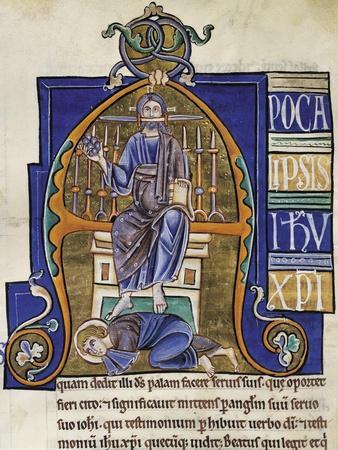 A
POCA
LIPSIS
IHV
XPI
quam dedit illi ds palam facere seruis suis. que oportet
fieri cito: & significauit mittens p anglm suum seruo
suo iohi. qui testimonium phibuit uerbo di: & testi
monium ihu xpi quecuq; uidit: Beatus qui legit et q